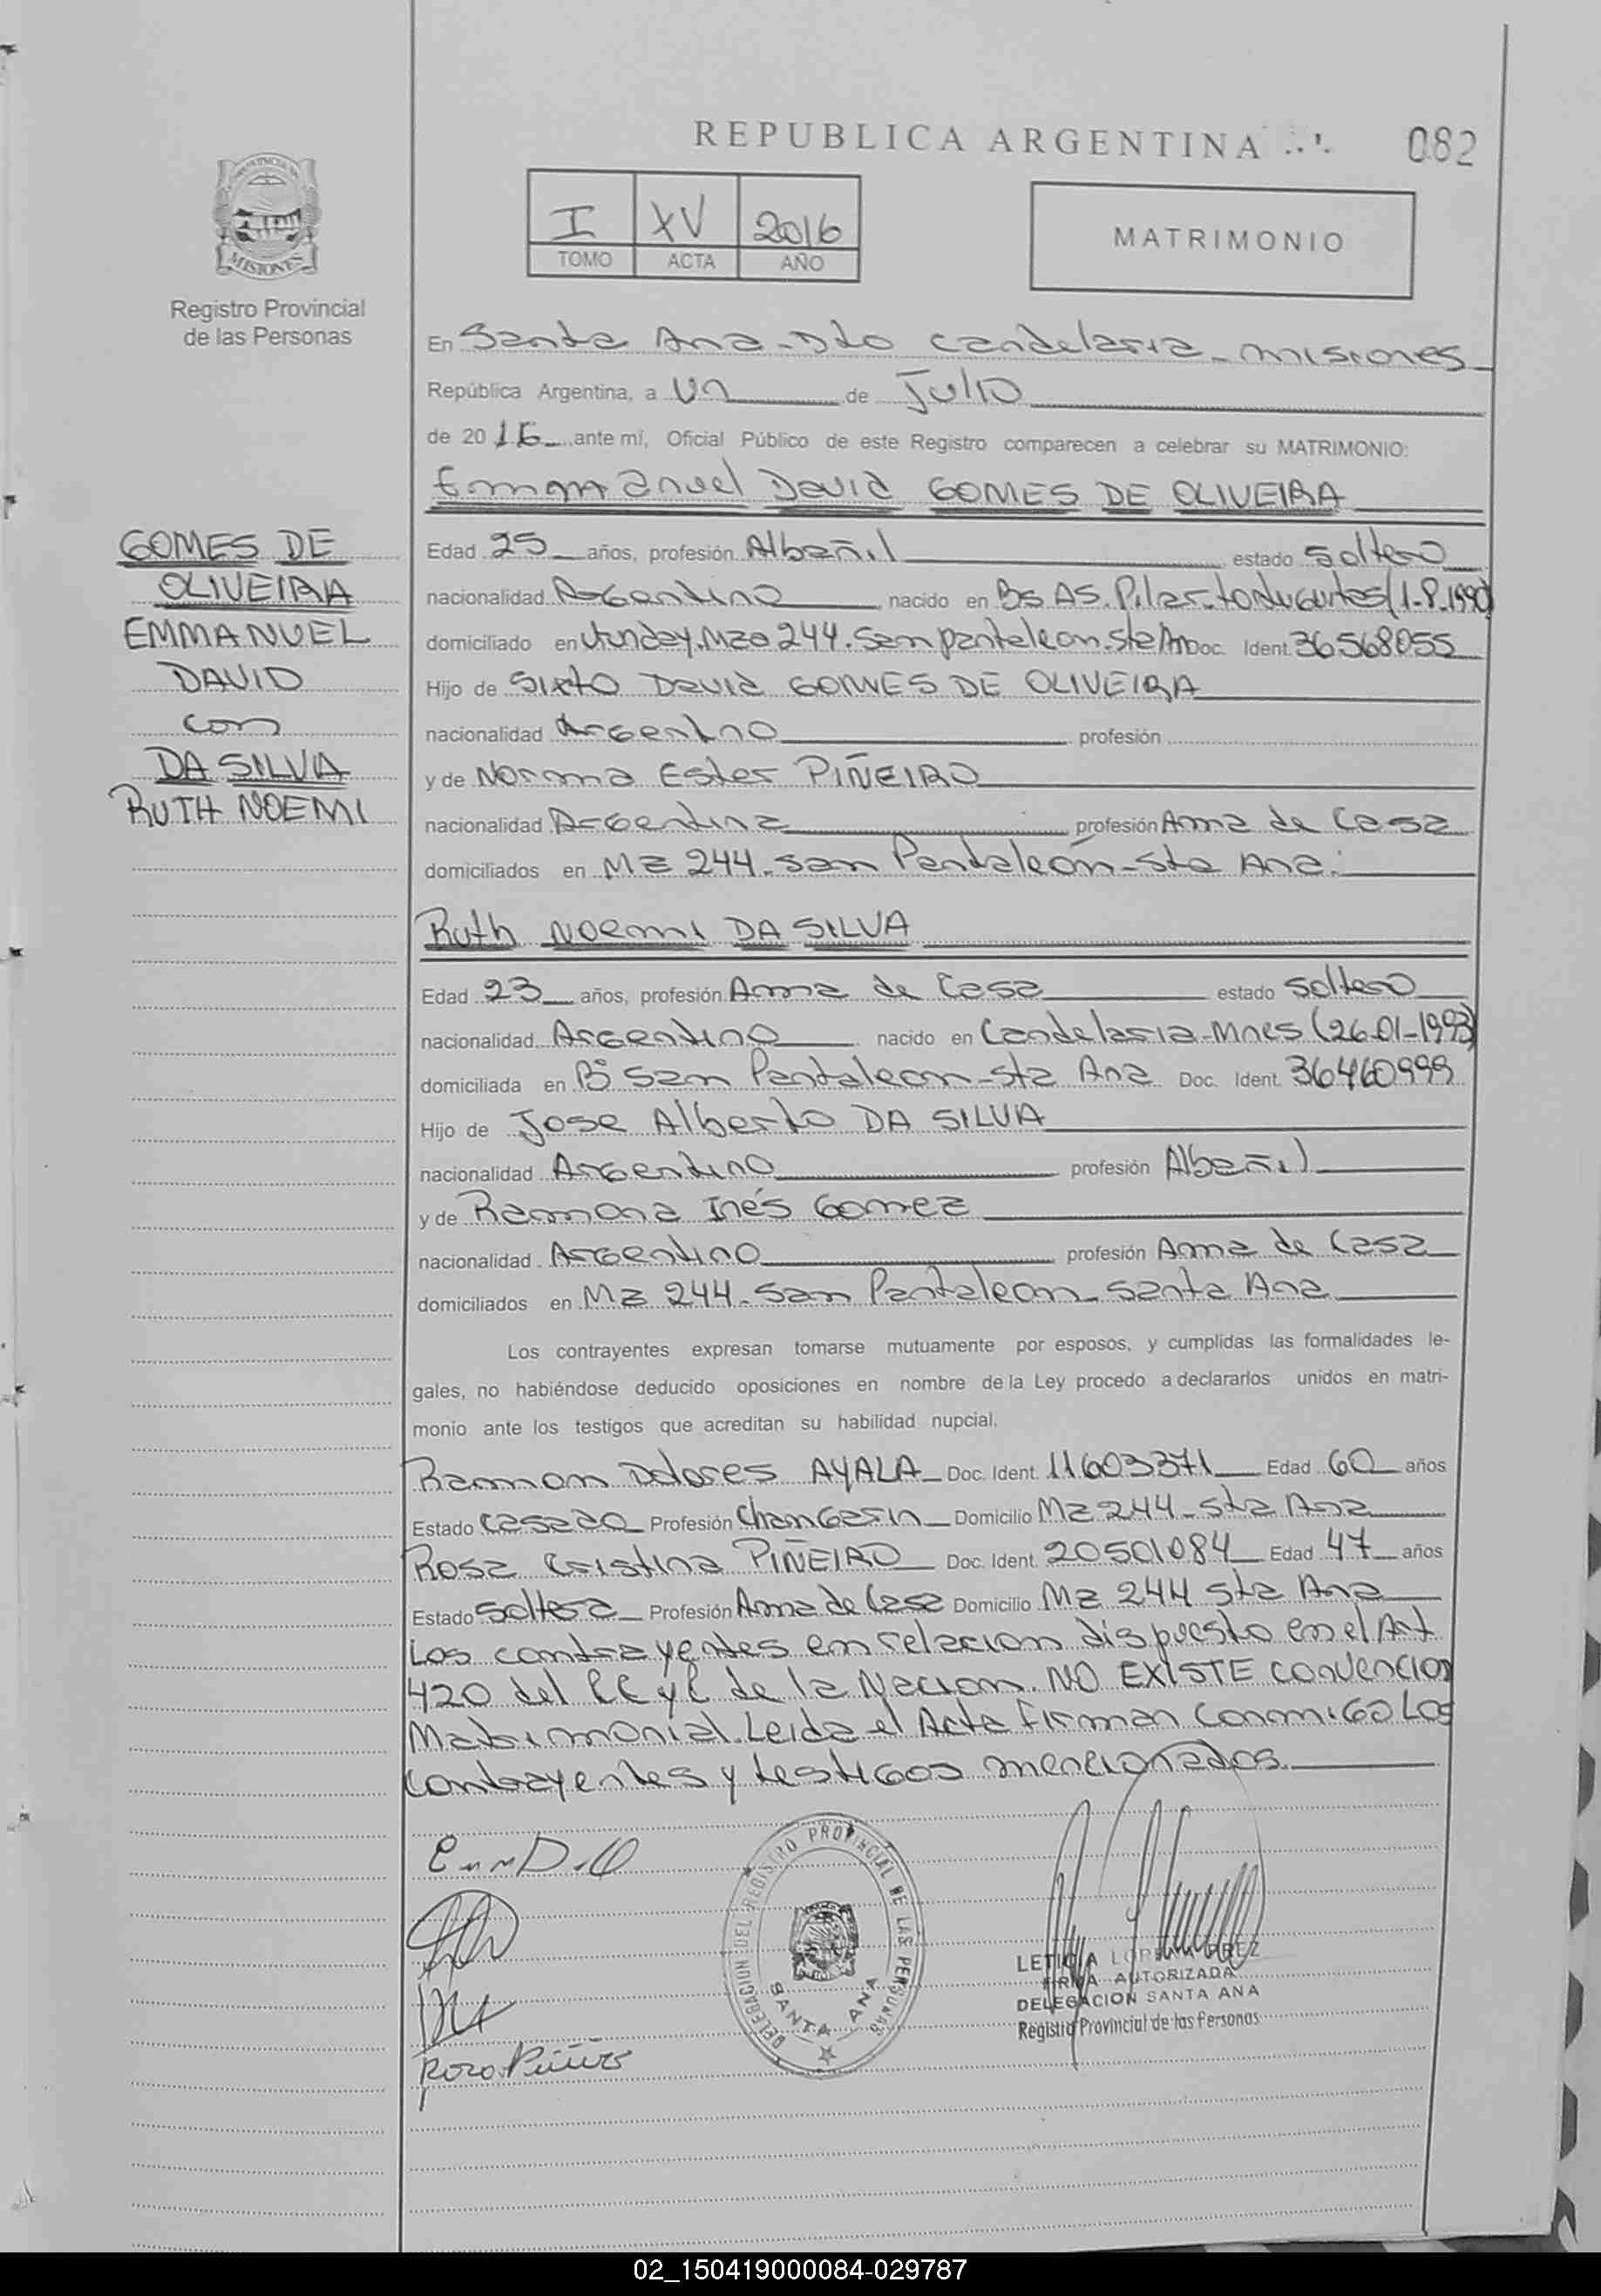 REPUBLICA ARGENTINA
082
PROVINCIA DE
MISIONES
Registro Provincial
de las Personas
I XV 2016
TOMO ACTA AÑO
MATRIMONIO
En Santa Ana - Dto Candelaria - misiones
República Argentina, a Un de Julio
de 2016 ante mí, Oficial Público de este Registro comparecen a celebrar su MATRIMONIO:
Emmanuel David GOMES DE OLIVEIRA
GOMES DE
OLIVEIRA
EMMANUEL
DAVID
con
DA SILVA
RUTH NOEMI
Edad 25 años, profesión Albañil estado Soltero
nacionalidad Argentino nacido en Bs AS. Pilar. (1-8-1990)
domiciliado en Urunday. Mza 244. San pantaleon. Sta An Doc. Ident. 36568055
Hijo de Sixto David GOMES DE OLIVEIRA
nacionalidad Argentino profesión
y de Norma Ester PIÑEIRO
nacionalidad Argentina profesión Ama de Casa
domiciliados en Mz 244. San Pantaleón - Sta Ana.
Ruth Noemi DA SILVA
Edad 23 años, profesión Ama de Casa estado Soltero
nacionalidad Argentino nacido en Candelaria - Mnes (26-01-1993)
domiciliada en Bº San Pantaleon - Sta Ana Doc. Ident. 36460999
Hijo de Jose Alberto DA SILVA
nacionalidad Argentino profesión Albañil
y de Ramona Inés Gomez
nacionalidad Argentino profesión Ama de Casa
domiciliados en Mz 244. San Pantaleon - Santa Ana
Los contrayentes expresan tomarse mutuamente por esposos, y cumplidas las formalidades le-
gales, no habiéndose deducido oposiciones en nombre de la Ley procedo a declararlos unidos en matri-
monio ante los testigos que acreditan su habilidad nupcial.
Ramon Dolores AYALA Doc. Ident. 11603371 Edad 60 años
Estado Casado Profesión Changarin Domicilio Mz 244 - Sta Ana
Rosa Cristina PIÑEIRO Doc. Ident. 20501084 Edad 47 años
Estado Soltera Profesión Ama de Casa Domicilio Mz 244 Sta Ana
Los contrayentes en relacion dispuesto en el Art
420 del CC y C de la Nacion. NO EXISTE convencion
Matrimonial. Leida el Acta firman Conmigo Los
Contrayentes y testigos mencionados.
DELEGACION DEL REGISTRO PROVINCIAL DE LAS PERSONAS
SANTA ANA
LETICIA LORENA PREZ
FIRMA AUTORIZADA
DELEGACION SANTA ANA
Registro Provincial de las Personas
Rosa Piñeiro
02_150419000084-029787